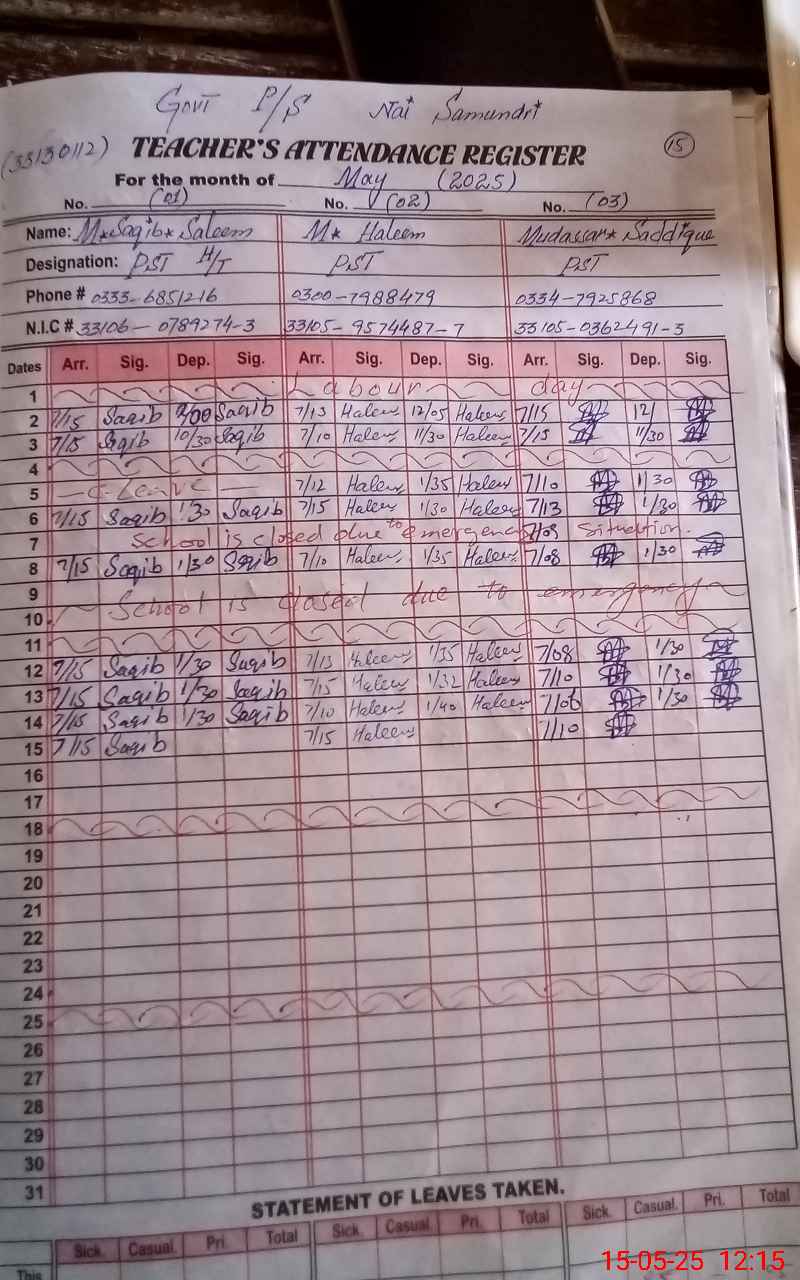 Govt P/S Nai Samundri
(33130112) TEACHER'S ATTENDANCE REGISTER 15
For the month of May (2025)
No. (01) No. (02) No. (03)
Name: M*Saqib*Saleem M* Haleem Mudassar* Saddique
Designation: PST H/T PST PST
Phone # 0333-6851216 0300-7988479 0334-7925868
N.I.C # 33106-0789274-3 33105-9574487-7 33105-0362491-3
Dates Arr. Sig. Dep. Sig. Arr. Sig. Dep. Sig. Arr. Sig. Dep. Sig.
1 Labour day
2 7/15 Saqib 12/00 Saqib 7/13 Haleem 12/05 Haleem 7/15 12/
3 7/15 Saqib 10/30 Saqib 7/10 Haleem 11/30 Haleem 7/15 11/30
4
5 Leave 7/12 Haleem 1/35 Haleem 7/10 1/30
6 7/15 Saqib 1/30 Saqib 7/15 Haleem 1/30 Haleem 7/13 1/30
7 School is closed due to emergency 7/08 situation.
8 7/15 Saqib 1/30 Saqib 7/10 Haleem 1/35 Haleem 7/08 1/30
9 School is closed due to emergency
10
11
12 7/15 Saqib 1/30 Saqib 7/13 Haleem 1/35 Haleem 7/08 1/30
13 7/15 Saqib 1/30 Saqib 7/15 Haleem 1/32 Haleem 7/10 1/30
14 7/15 Saqib 1/30 Saqib 7/10 Haleem 1/40 Haleem 7/06 1/30
15 7/15 Saqib 7/15 Haleem 7/10
16
17
18
19
20
21
22
23
24
25
26
27
28
29
30
31
STATEMENT OF LEAVES TAKEN.
Sick. Casual. Pri. Total Sick. Casual. Pri. Total Sick. Casual. Pri. Total
This
15-05-25 12:15